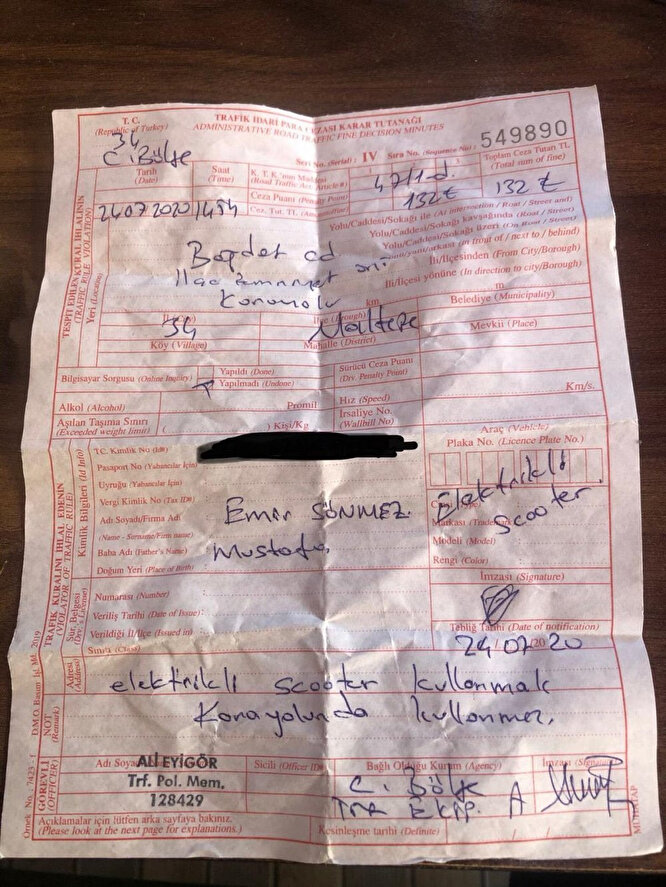 T. C.
(Republic of Turkey)
TRAFİK İDARİ PARA CEZASI KARAR TUTANAĞI
ADMINISTRATIVE ROAD TRAFFIC FINE DECISION MINUTES
34
C. Bölge
Seri No. (Serial) : IV Sıra No. (Sequence No) : 549890
Tarih
(Date)
Saat
(Time)
K. T. K.'nun Maddesi
(Road Traffic Act. Article #)
47/1d.
Toplam Ceza Tutarı TL
(Total sum of fine)
Ceza Puanı (Penalty Point)
132 ₺
132 ₺
24.07 2020 14:54
Cez. Tut. TL.
TESPİT EDİLEN KURAL İHLALİNİN
(TRAFFIC RULE VIOLATION)
Yeri (Location)
Yolu/Caddesi/Sokağı ile (At intersection / Road / Street and)
Yolu/Caddesi/Sokağı kavşağında (Road / Street)
Yolu/Caddesi/Sokağı üzeri (On Road / Street)
(in front of / next to / behind)
İli/İlçesinden (From City/Borough)
İli/İlçesi yönüne (In direction to city/Borough)
Bağdat cd
km
m
34
Maltepe
Belediye (Municipality)
Köy (Village)
Mahalle (District)
Mevkii (Place)
Bilgisayar Sorgusu (Online Inquiry)
Yapıldı (Done)
Yapılmadı (Undone)
Sürücü Ceza Puanı
(Drv. Penalty Point)
Alkol (Alcohol)
Promil
Hız (Speed)
Km/s.
Aşılan Taşıma Sınırı
(Exceeded weight limit)
( ) Kişi/Kg
İrsaliye No.
(Waybill No)
TRAFİK KURALINI İHLAL EDENİN
(VIOLATOR OF TRAFFIC RULE)
Kimlik Bilgileri (Id Info)
TC. Kimlik No (Id#)
Araç (Vehicle)
Plaka No. (Licence Plate No.)
Pasaport No (Yabancılar İçin)
Uyruğu (Yabancılar İçin)
Vergi Kimlik No (Tax ID#)
Adı Soyadı/Firma Adı
(Name - Surname/Firm name)
Emir SÖNMEZ
Elektrikli
scooter.
Markası (Trademark)
Modeli (Model) :
Rengi (Color) :
Baba Adı (Father's Name)
Mustafa
Doğum Yeri (Place of Birth)
İmzası (Signature)
Sür. Belgesi
(Drv. License)
Numarası (Number) :
Veriliş Tarihi (Date of Issue) :
Verildiği İl/İlçe (Issued in) :
Sınıfı (Class)
Tebliğ Tarihi (Date of notification)
24/07/2020
Adresi
(Address)
elektrikli scooter kullanmak
NOT
(Remark)
Karayolunda kullanmak
D.M.O. Basım İşl. Md. 2019
GÖREVLİ
(OFFICER)
Adı Soyadı
Sicili (Officer ID#)
Bağlı Olduğu Kurum (Agency)
İmzası (Signature)
ALİ EYİGÖR
Trf. Pol. Mem.
128429
C. Bölge
A
Açıklamalar için lütfen arka sayfaya bakınız.
(Please look at the next page for explanations.)
Kesinleşme tarihi (Definite) / /